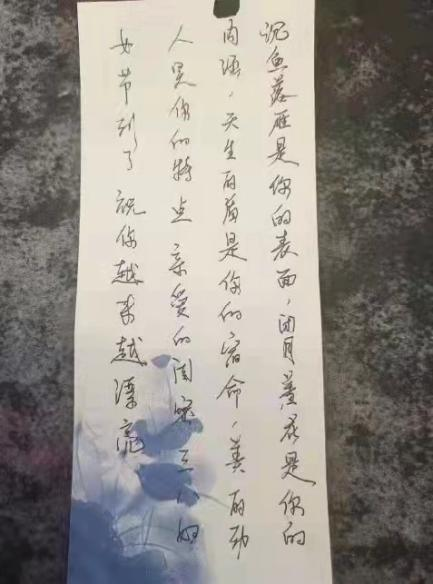 沉鱼落雁是你的表面，闭月羞花是你的
内涵，天生丽质是你的宿命，美丽动
人是你的特点亲爱的闺蜜三八妇
女节到了祝你越来越漂亮